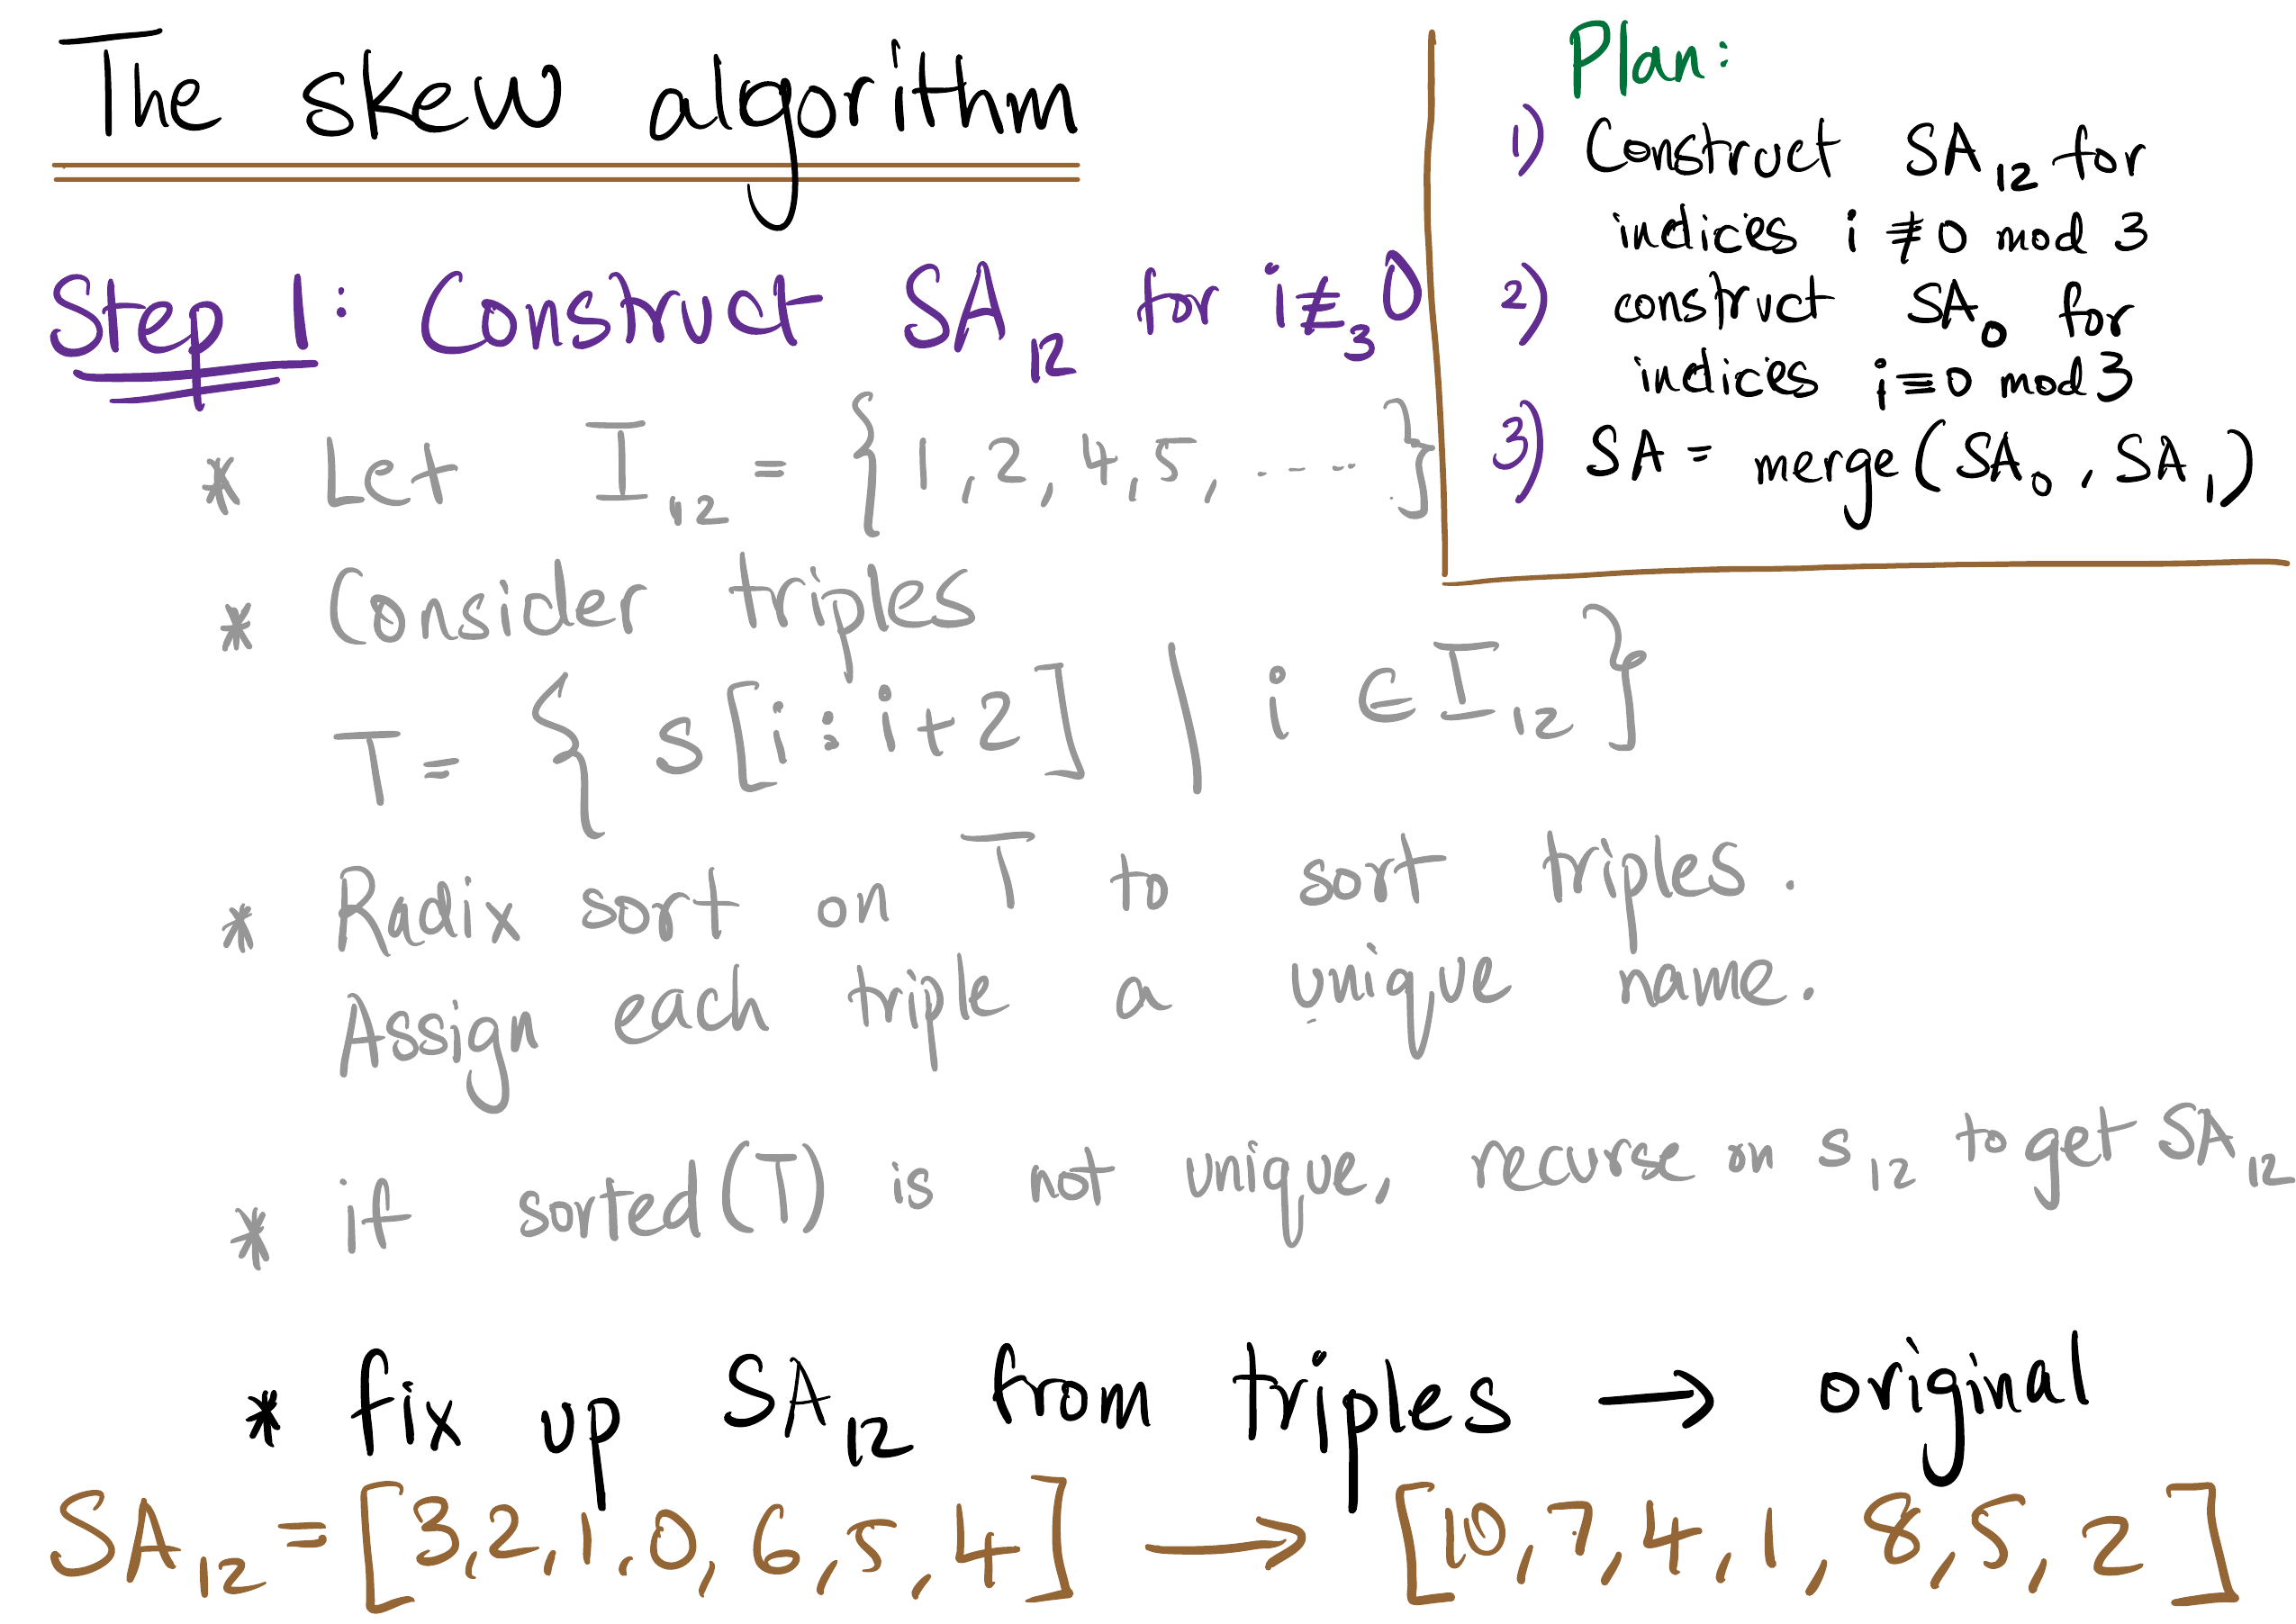 The skew algorithm
Plan:
1) Construct SA₁₂ for
indices i ≢ 0 mod 3
2) construct SA₀ for
indices i ≡ 0 mod 3
3) SA = merge(SA₀, SA₁)
Step 1: Construct SA₁₂ for i ≢₃ 0
* Let I₁₂ = {1, 2, 4, 5, .....}
* Consider triples
T = { s[i : i+2] | i ∈ I₁₂ }
* Radix sort on T to sort triples.
Assign each triple a unique name.
* if sorted(T) is not unique, recurse on s₁₂ to get SA₁₂
* fix up SA₁₂ from triples → original
SA₁₂ = [3, 2, 1, 0, 6, 5, 4] → [10, 7, 4, 1, 8, 5, 2]